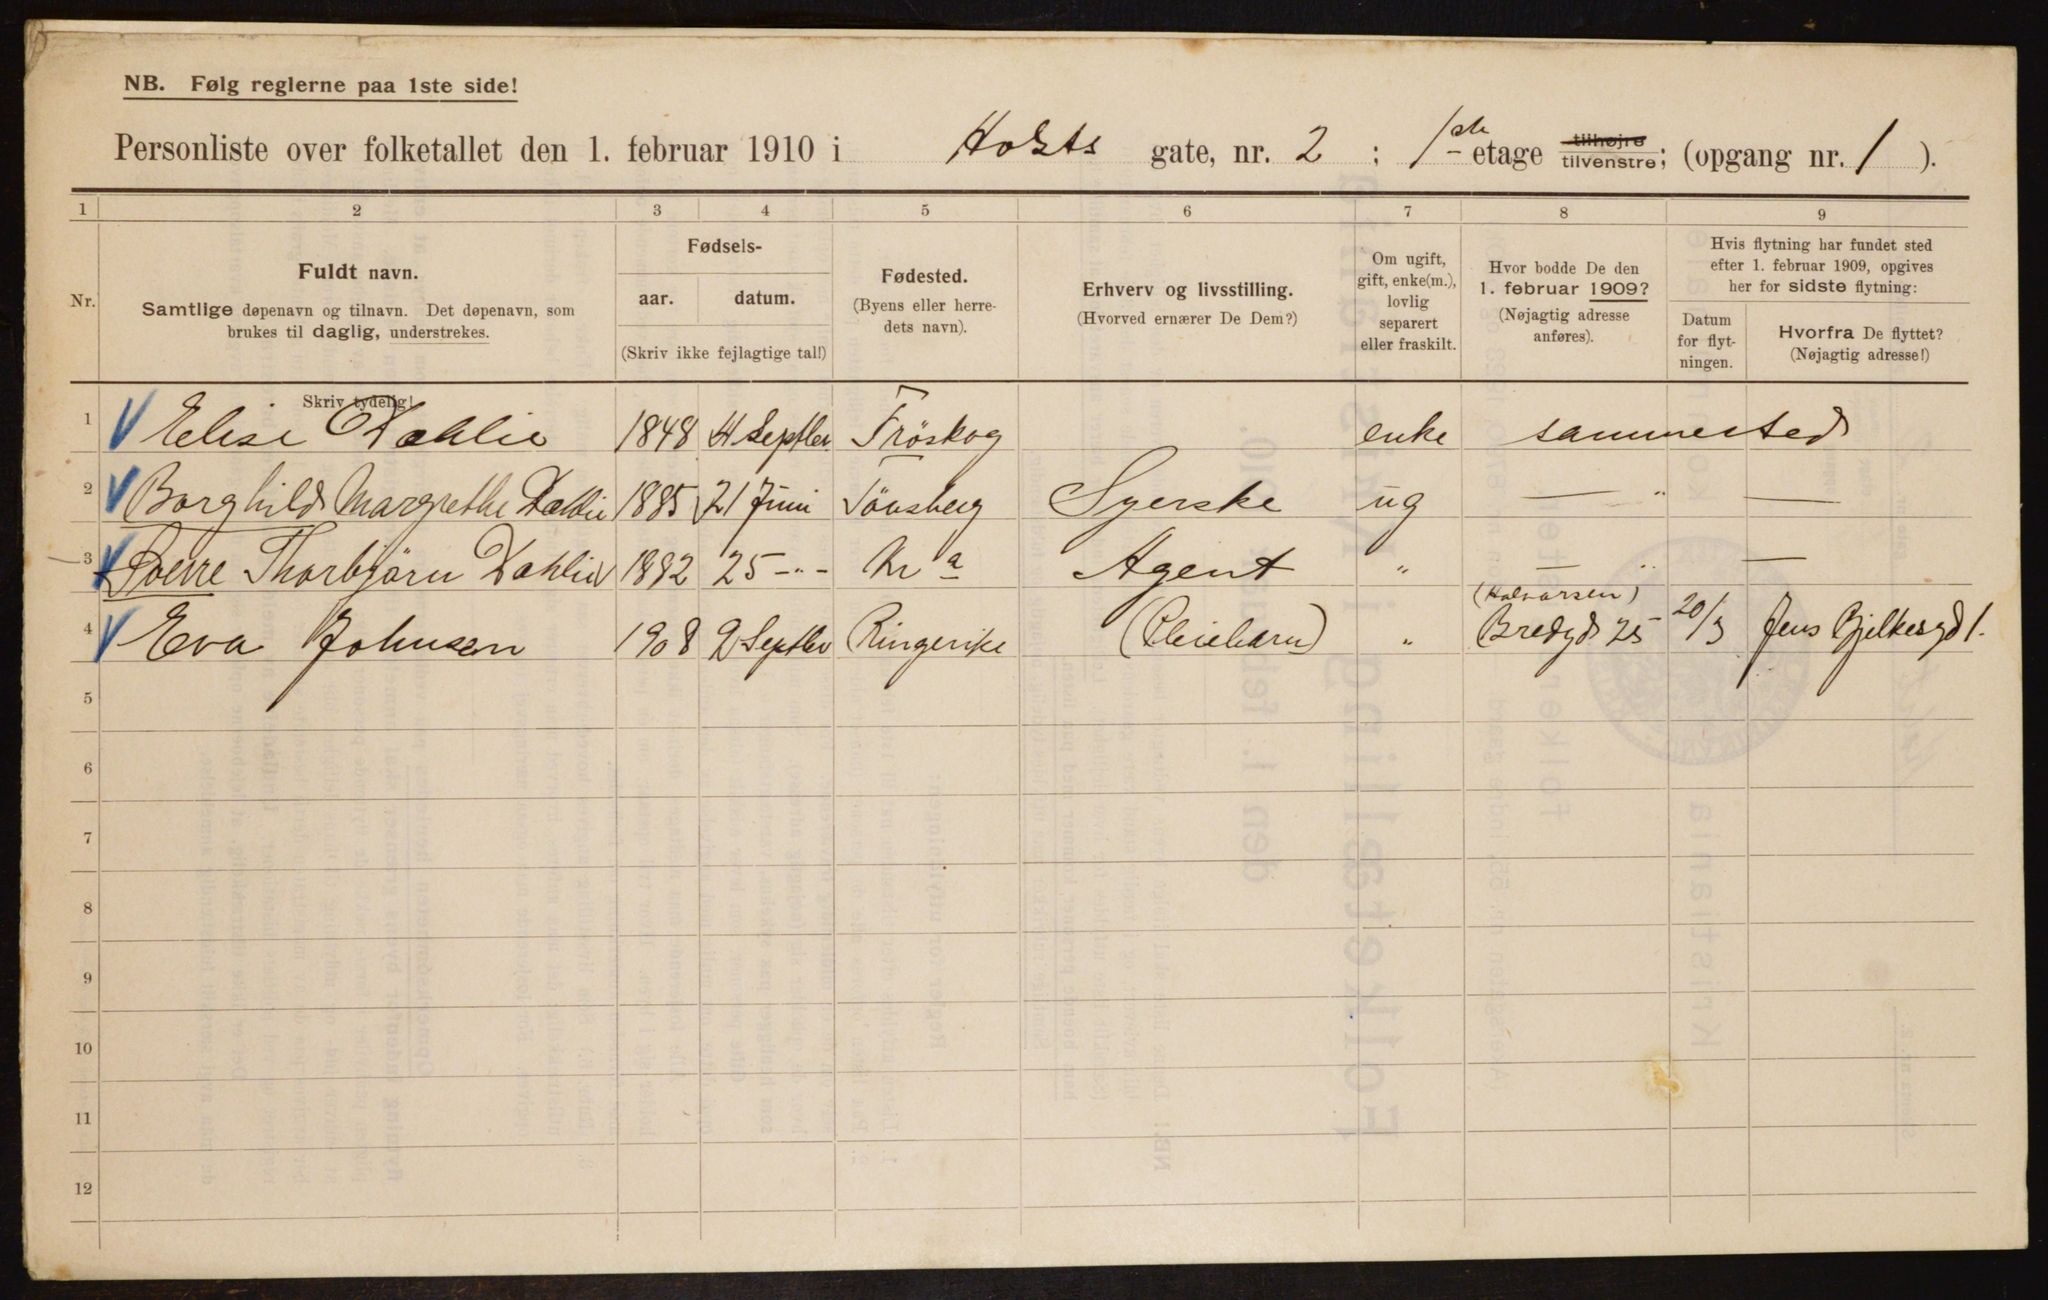 NB. Følg reglerne paa 1ste side!
Personliste over folketallet den 1. februar 1910 i Holsts gate, nr. 2 ; 1ste etage tilhøjre tilvenstre; (opgang nr. 1 ).
1 2 3 4 5 6 7 8 9
Nr.
Fuldt navn.
Samtlige døpenavn og tilnavn. Det døpenavn, som
brukes til daglig, understrekes.
Skriv tydelig!
Fødsels-
aar. datum.
(Skriv ikke fejlagtige tal!)
Fødested.
(Byens eller herre-
dets navn).
Erhverv og livsstilling.
(Hvorved ernærer De Dem?)
Om ugift,
gift, enke(m.),
lovlig
separert
eller fraskilt.
Hvor bodde De den
1. februar 1909?
(Nøjagtig adresse
anføres).
Hvis flytning har fundet sted
efter 1. februar 1909, opgives
her for sidste flytning:
Datum
for flyt-
ningen.
Hvorfra De flyttet?
(Nøjagtig adresse!)
1 Elise Dæhlie 1848 4 Septbr Fröskog enke sammested
2 Borghild Margrethe Dæhlie 1885 21 Juni Tönsberg Syerske ug — " —
3 Thorbjörn Dæhlie 1882 25 -"- Kra Agent " — " —
4 Eva Johnsen 1908 9 Septbr Ringerike (Pleiebarn) " (Halvorsen) Bredgd 25 20/3 Jens Bjelkesgd 1.
5
6
7
8
9
10
11
12